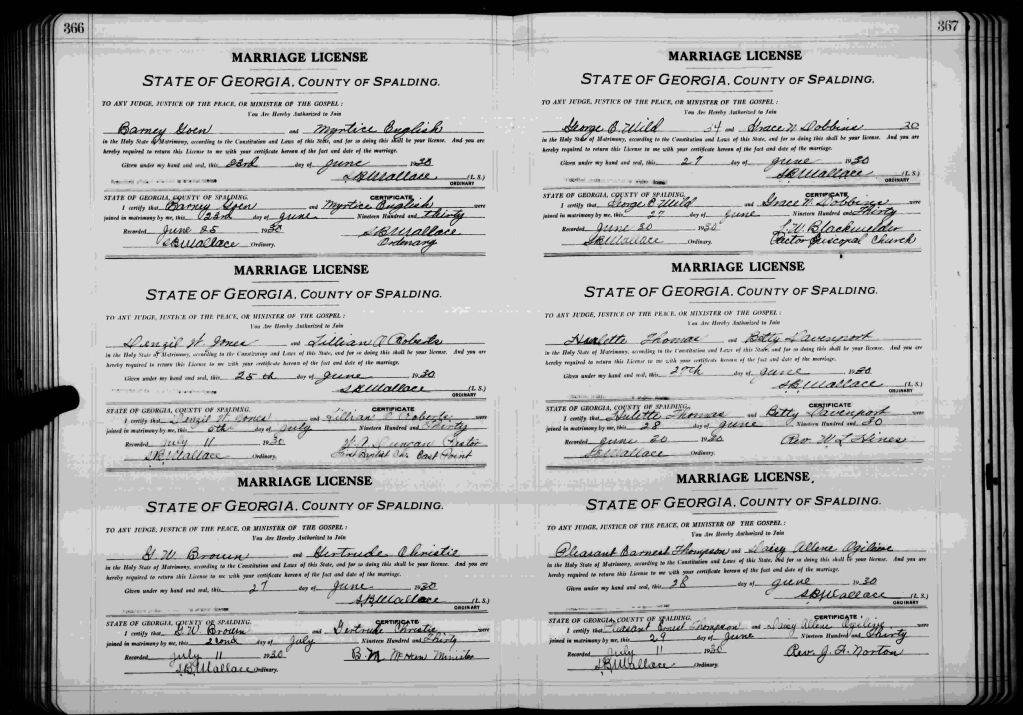 366
MARRIAGE LICENSE
STATE OF GEORGIA, COUNTY OF SPALDING.
TO ANY JUDGE, JUSTICE OF THE PEACE, OR MINISTER OF THE GOSPEL:
You Are Hereby Authorized to Join
Barney Goen and Myrtice English
in the Holy State of Matrimony, according to the Constitution and Laws of this State, and for so doing this shall be your license. And you are
hereby required to return this License to me with your certificate hereon of the fact and date of the marriage.
Given under my hand and seal, this 23rd day of June 1930
S.B. Wallace (L. S.)
ORDINARY
STATE OF GEORGIA, COUNTY OF SPALDING. CERTIFICATE
I certify that Barney Goen and Myrtice English were
joined in matrimony by me, this 23rd day of June Nineteen Hundred and thirty
Recorded June 25 1930 S.B. Wallace
S.B. Wallace Ordinary. Ordinary
MARRIAGE LICENSE
STATE OF GEORGIA, COUNTY OF SPALDING.
TO ANY JUDGE, JUSTICE OF THE PEACE, OR MINISTER OF THE GOSPEL:
You Are Hereby Authorized to Join
Denzil W. Jones and Lillian A Roberts
in the Holy State of Matrimony, according to the Constitution and Laws of this State, and for so doing this shall be your license. And you are
hereby required to return this License to me with your certificate hereon of the fact and date of the marriage.
Given under my hand and seal, this 25th day of June 1930
S.B. Wallace (L. S.)
ORDINARY
STATE OF GEORGIA, COUNTY OF SPALDING. CERTIFICATE
I certify that Denzil W. Jones and Lillian Roberts were
joined in matrimony by me, this 5th day of July Nineteen Hundred and Thirty
Recorded July 11 1930 Duncan Pastor
S.B. Wallace Ordinary. 1st Baptist Ch. East Point
MARRIAGE LICENSE
STATE OF GEORGIA, COUNTY OF SPALDING.
TO ANY JUDGE, JUSTICE OF THE PEACE, OR MINISTER OF THE GOSPEL:
You Are Hereby Authorized to Join
G. W. Brown and Gertrude Christie
in the Holy State of Matrimony, according to the Constitution and Laws of this State, and for so doing this shall be your license. And you are
hereby required to return this License to me with your certificate hereon of the fact and date of the marriage.
Given under my hand and seal, this 27 day of June 1930
S.B. Wallace (L. S.)
ORDINARY
STATE OF GEORGIA, COUNTY OF SPALDING. CERTIFICATE
I certify that G. W. Brown and Gertrude Christie were
joined in matrimony by me, this 22nd day of July Nineteen Hundred and Thirty
Recorded July 11 1930 B M Minister
S.B. Wallace Ordinary.
367
MARRIAGE LICENSE
STATE OF GEORGIA, COUNTY OF SPALDING.
TO ANY JUDGE, JUSTICE OF THE PEACE, OR MINISTER OF THE GOSPEL:
You Are Hereby Authorized to Join
George E. Wild 34 and Grace N Dobbins 30
in the Holy State of Matrimony, according to the Constitution and Laws of this State, and for so doing this shall be your license. And you are
hereby required to return this License to me with your certificate hereon of the fact and date of the marriage.
Given under my hand and seal, this 27 day of June 1930
S.B. Wallace (L. S.)
ORDINARY
STATE OF GEORGIA, COUNTY OF SPALDING. CERTIFICATE
I certify that George E. Wild and Grace N. Dobbins were
joined in matrimony by me, this 27 day of June Nineteen Hundred and Thirty
Recorded June 30 1930 L. W. Blackwelder
S.B. Wallace Ordinary. Rector Episcopal Church
MARRIAGE LICENSE
STATE OF GEORGIA, COUNTY OF SPALDING.
TO ANY JUDGE, JUSTICE OF THE PEACE, OR MINISTER OF THE GOSPEL:
You Are Hereby Authorized to Join
Hulette Thomas and Betty Davenport
in the Holy State of Matrimony, according to the Constitution and Laws of this State, and for so doing this shall be your license. And you are
hereby required to return this License to me with your certificate hereon of the fact and date of the marriage.
Given under my hand and seal, this 27th day of June 1930
S.B. Wallace (L. S.)
ORDINARY
STATE OF GEORGIA, COUNTY OF SPALDING. CERTIFICATE
I certify that Hulette Thomas and Betty Davenport were
joined in matrimony by me, this 28 day of June Nineteen Hundred and 30
Recorded June 30 1930 Rev. W L Hines
S.B. Wallace Ordinary.
MARRIAGE LICENSE
STATE OF GEORGIA, COUNTY OF SPALDING.
TO ANY JUDGE, JUSTICE OF THE PEACE, OR MINISTER OF THE GOSPEL:
You Are Hereby Authorized to Join
Pleasant Earnest Thompson and Daisy Allene Ogilvie
in the Holy State of Matrimony, according to the Constitution and Laws of this State, and for so doing this shall be your license. And you are
hereby required to return this License to me with your certificate hereon of the fact and date of the marriage.
Given under my hand and seal, this 28 day of June 1930
S.B. Wallace (L. S.)
ORDINARY
STATE OF GEORGIA, COUNTY OF SPALDING. CERTIFICATE
I certify that Pleasant Ernest Thompson and Daisy Allene Ogilvie were
joined in matrimony by me, this 29 day of June Nineteen Hundred and Thirty
Recorded July 11 1930 Rev. J. A. Norton
S.B. Wallace Ordinary.